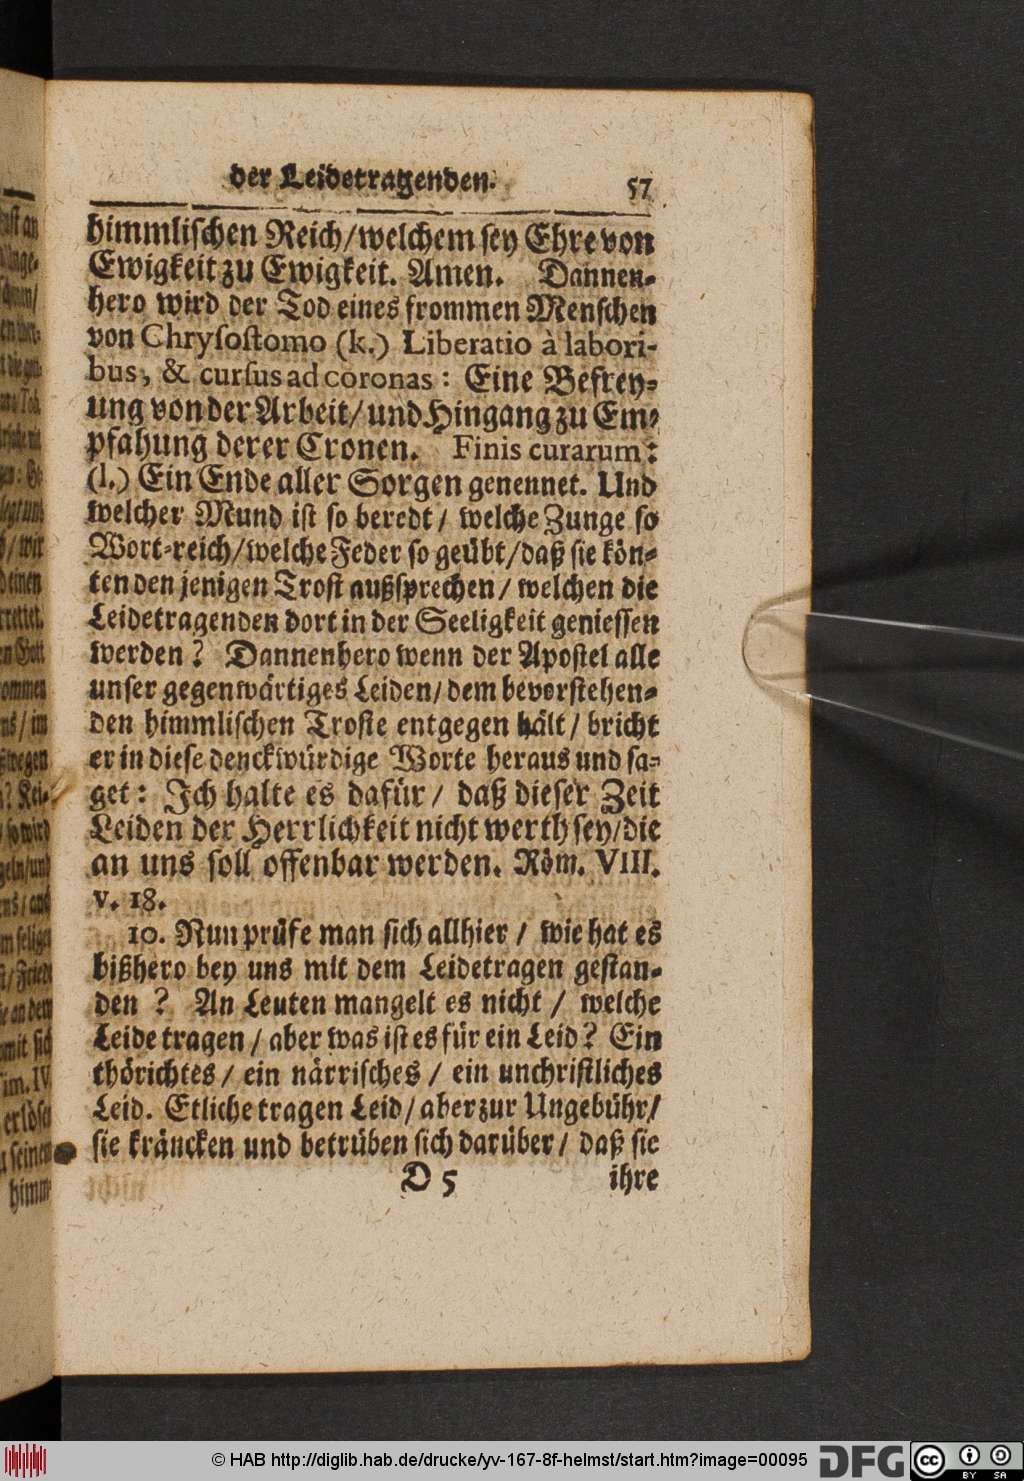 der Leidetragenden.
57
himmlischen Reich/welchem sey Ehre von
Ewigkeit zu Ewigkeit. Amen. Dannen-
hero wird der Tod eines frommen Menschen
von Chrysostomo (k.) Liberatio à labori-
bus, & cursus ad coronas: Eine Befrey-
ung von der Arbeit/und Hingang zu Em-
pfahung derer Cronen. Finis curarum:
(l.) Ein Ende aller Sorgen genennet. Und
welcher Mund ist so beredt/ welche Zunge so
Wort-reich/welche Feder so geübt/daß sie kön-
ten den jenigen Trost außsprechen/ welchen die
Leidetragenden dort in der Seeligkeit geniessen
werden? Dannenhero wenn der Apostel alle
unser gegenwärtiges Leiden/dem bevorstehen-
den himmlischen Troste entgegen hält/ bricht
er in diese denckwürdige Worte heraus und sa-
get: Ich halte es dafür/ daß dieser Zeit
Leiden der Herrlichkeit nicht werth sey/die
an uns soll offenbar werden. Röm. VIII.
v. 18.
10. Nun prüfe man sich allhier/ wie hat es
bißhero bey uns mit dem Leidetragen gestan-
den? An Leuten mangelt es nicht/ welche
Leide tragen/ aber was ist es für ein Leid? Ein
thörichtes/ ein närrisches/ ein unchristliches
Leid. Etliche tragen Leid/aber zur Ungebühr/
sie kräncken und betrüben sich darüber/ daß sie
D 5
ihre
© HAB http://diglib.hab.de/drucke/yv-167-8f-helmst/start.htm?image=00095
DFG
cc
BY SA